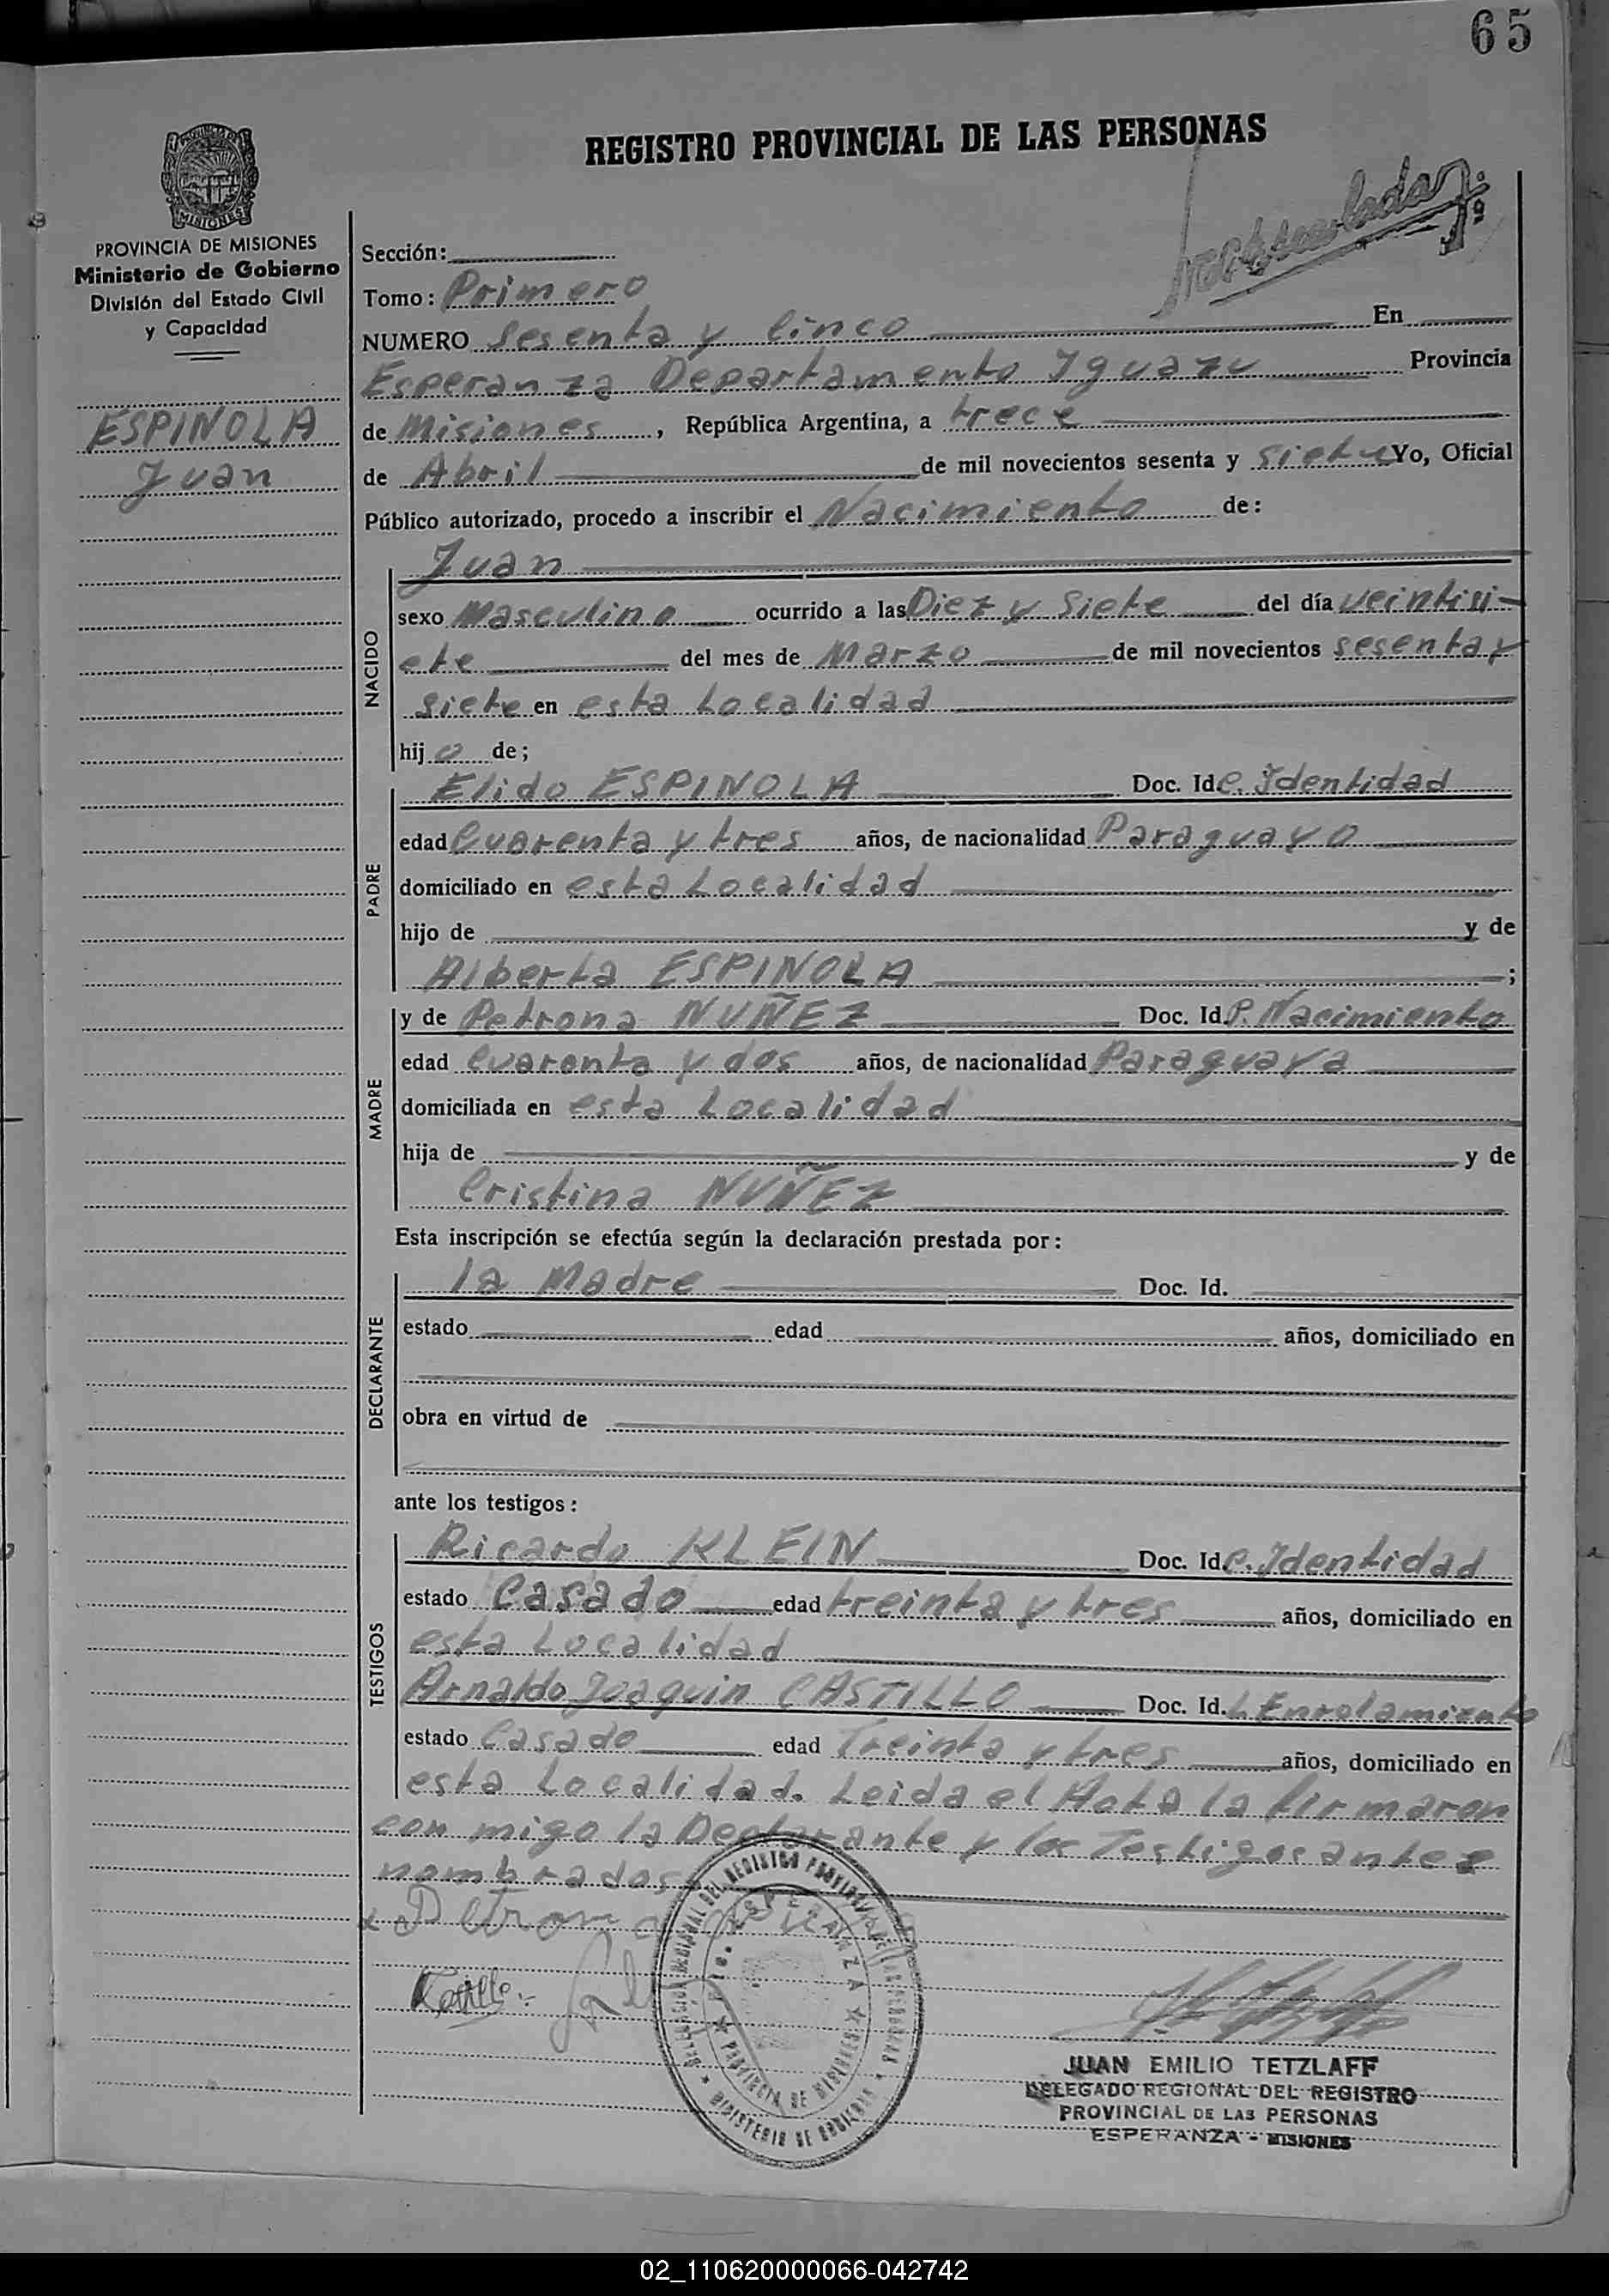 65
REGISTRO PROVINCIAL DE LAS PERSONAS
MISIONES
PROVINCIA DE MISIONES
Ministerio de Gobierno
División del Estado Civil
y Capacidad
ESPINOLA
Juan
Sección:
Tomo: Primero
NUMERO Sesenta y Cinco En
Esperanza Departamento Iguazu Provincia
de Misiones, República Argentina, a trece
de Abril de mil novecientos sesenta y siete Yo, Oficial
Público autorizado, procedo a inscribir el Nacimiento de:
Juan
NACIDO
sexo Masculino ocurrido a las Diez y Siete del día veintisi-
ete del mes de Marzo de mil novecientos sesenta y
siete en esta Localidad
hijo de;
PADRE
Elido ESPINOLA Doc. Id. C. Identidad
edad Cuarenta y tres años, de nacionalidad Paraguayo
domiciliado en esta Localidad
hijo de y de
Alberta ESPINOLA ;
MADRE
y de Petrona NUÑEZ Doc. Id. P. Nacimiento
edad Cuarenta y dos años, de nacionalidad Paraguaya
domiciliada en esta Localidad
hija de y de
Cristina NUÑEZ
Esta inscripción se efectúa según la declaración prestada por:
DECLARANTE
la Madre Doc. Id.
estado edad años, domiciliado en
obra en virtud de
ante los testigos:
TESTIGOS
Ricardo KLEIN Doc. Id. C. Identidad
estado Casado edad treinta y tres años, domiciliado en
esta Localidad
Arnaldo Joaquin CASTILLO Doc. Id. L Enrolamiento
estado Casado edad Treinta y tres años, domiciliado en
esta Localidad. Leida el Acta la firmaron
con migo la Declarante y los Testigos antes
nombrados
x Petrona
Castillo
ESPERANZA
PROVINCIA DE MISIONES
MINISTERIO DE GOBIERNO
JUAN EMILIO TETZLAFF
DELEGADO REGIONAL DEL REGISTRO
PROVINCIAL DE LAS PERSONAS
ESPERANZA - MISIONES
02_110620000066-042742